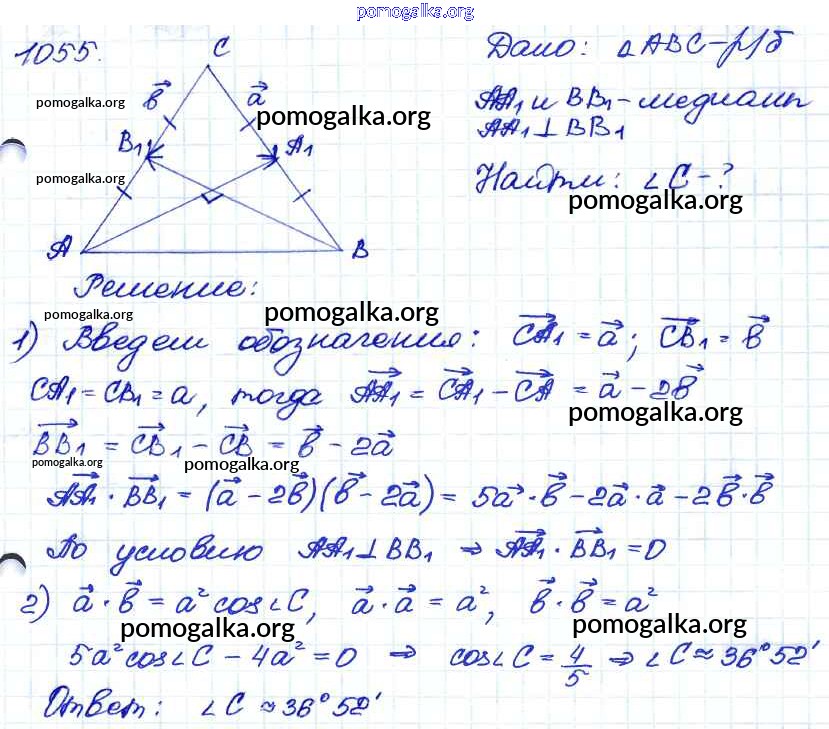 pomogalka.org
1055.
C
Дано: △ABC - р/б
b⃗
a⃗
pomogalka.org
pomogalka.org
AA₁ и BB₁ - медианы
B₁
A₁
AA₁ ⊥ BB₁
pomogalka.org
Найти: ∠C - ?
pomogalka.org
A
B
Решение:
pomogalka.org
pomogalka.org
1) Введем обозначения: CA₁⃗ = a⃗; CB₁⃗ = b⃗
CA₁ = CB₁ = a, тогда AA₁⃗ = CA₁⃗ - CA⃗ = a⃗ - 2b⃗
pomogalka.org
BB₁⃗ = CB₁⃗ - CB⃗ = b⃗ - 2a⃗
pomogalka.org
pomogalka.org
AA₁⃗ · BB₁⃗ = (a⃗ - 2b⃗)(b⃗ - 2a⃗) = 5a⃗ · b⃗ - 2a⃗ · a⃗ - 2b⃗ · b⃗
По условию AA₁ ⊥ BB₁ ⇒ AA₁⃗ · BB₁⃗ = 0
2) a⃗ · b⃗ = a² cos∠C, a⃗ · a⃗ = a², b⃗ · b⃗ = a²
pomogalka.org
pomogalka.org
5a² cos∠C - 4a² = 0 ⇒ cos∠C = 4/5 ⇒ ∠C ≈ 36°52'
Ответ: ∠C ≈ 36°52'